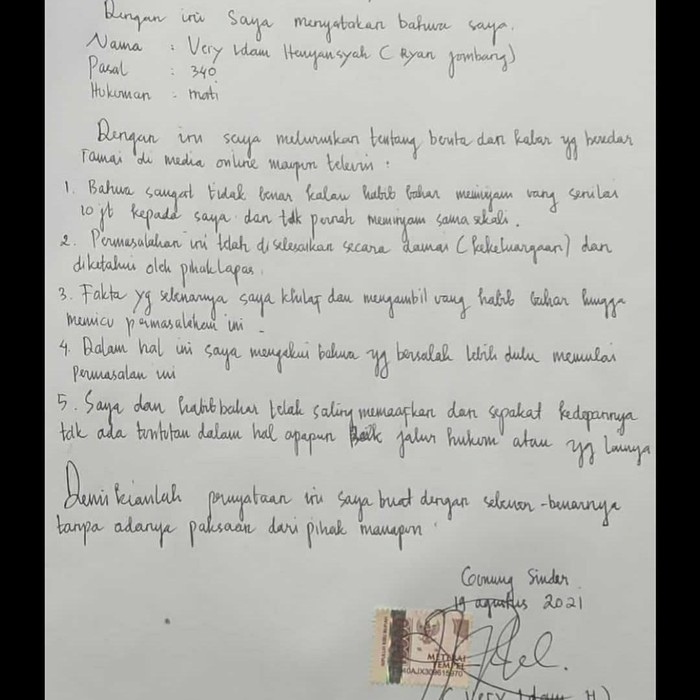 Dengan ini saya menyatakan bahwa saya.
Nama : Very Idam Henyansyah (Ryan Jombang)
Pasal : 340
Hukuman : mati
Dengan ini saya meluruskan tentang berita dan kabar yg beredar
ramai di media online maupun televisi :
1. Bahwa sangat tidak benar kalau habib bahar meminjam uang senilai
10 jt kepada saya dan tdk pernah meminjam sama sekali.
2. Permasalahan ini telah di selesaikan secara damai (kekeluargaan) dan
diketahui oleh pihak lapas.
3. Fakta yg sebenarnya saya khilaf dan mengambil uang habib bahar hingga
memicu permasalahan ini.
4. Dalam hal ini saya mengakui bahwa yg bersalah lebih dulu memulai
permasalan ini
5. Saya dan habib bahar telah saling memaafkan dan sepakat kedepannya
tdk ada tuntutan dalam hal apapun Baik jalur hukum atau yg lainnya
Demikianlah pernyataan ini saya buat dengan sebenar-benarnya
tanpa adanya paksaan dari pihak manapun.
Gunung Sindur
19 agustus 2021
METERAI
TEMPEL
(Very Idam H)